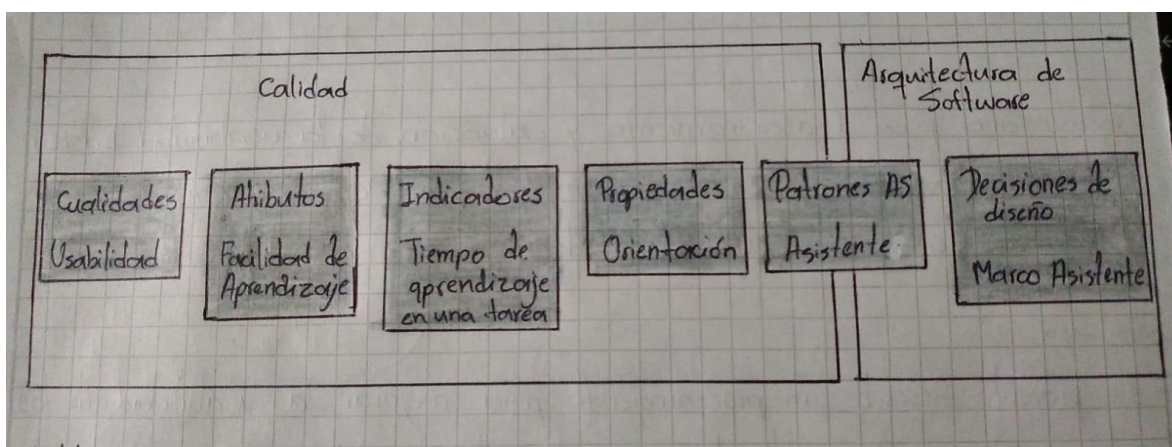 Calidad
Arquitectura de
Software
Cualidades
Usabilidad
Atributos
Facilidad de
Aprendizaje
Indicadores
Tiempo de
aprendizaje
en una tarea
Propiedades
Orientación
Patrones AS
Asistente
Decisiones de
diseño
Marco Asistente